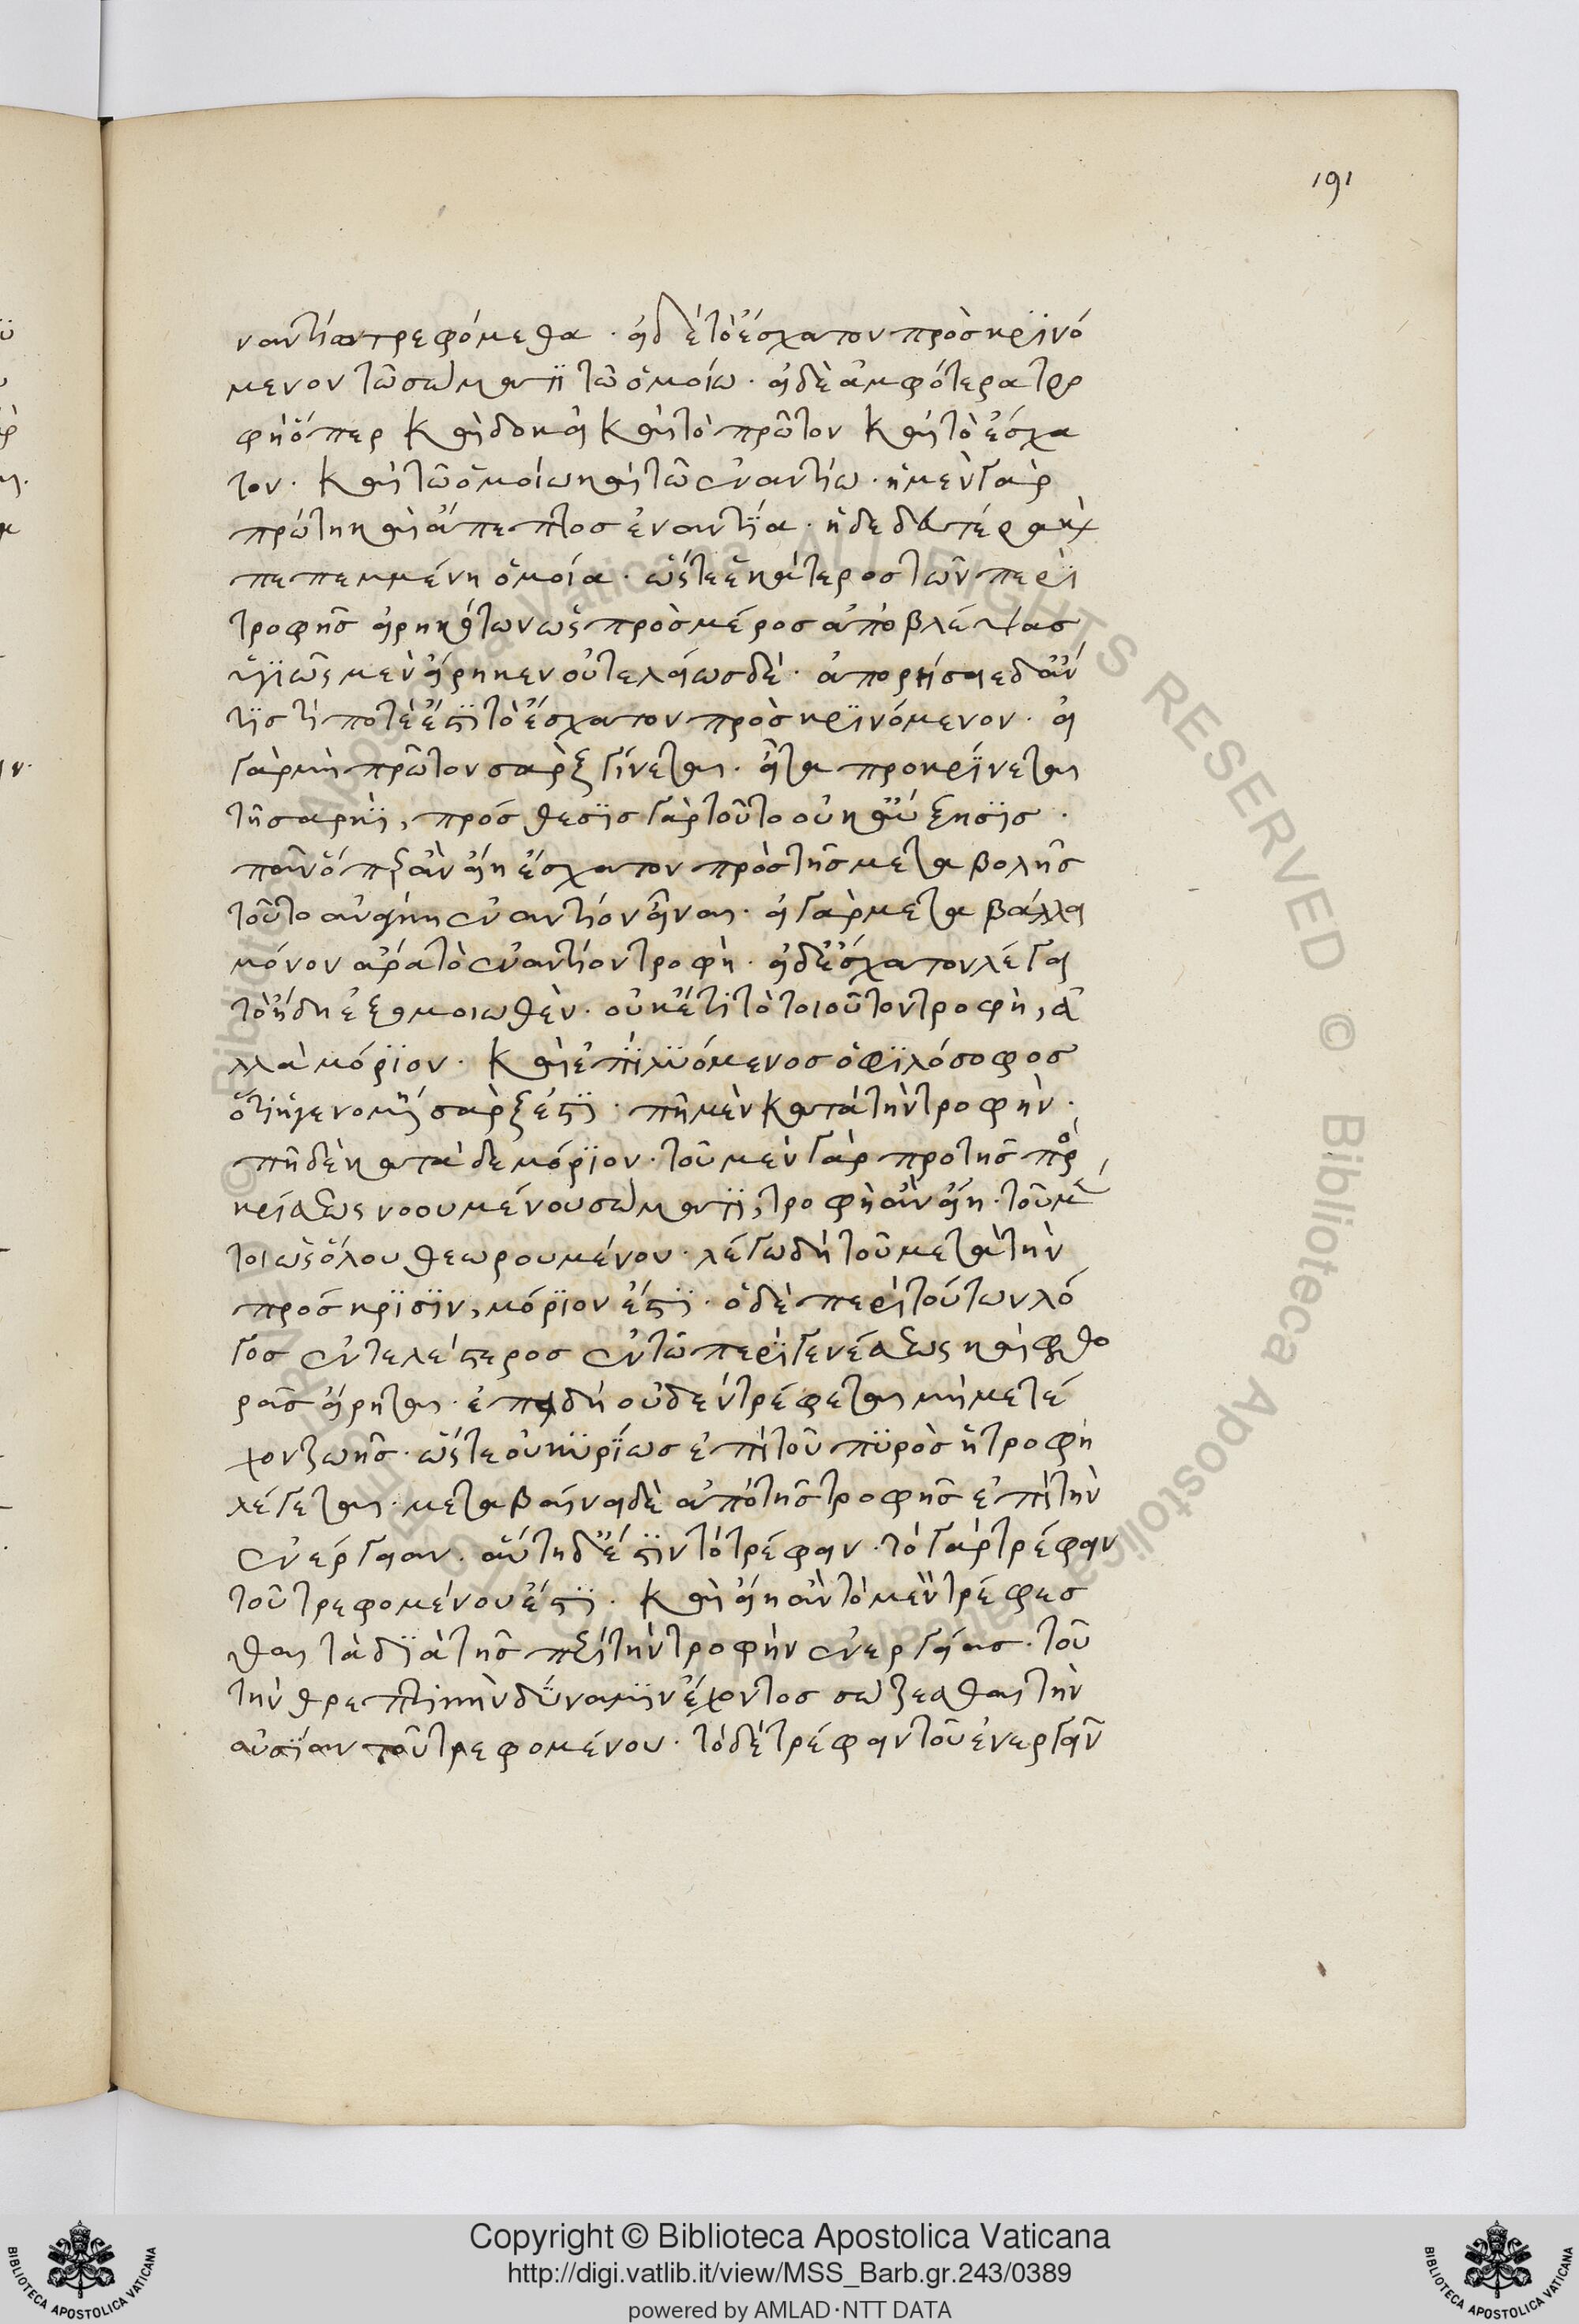 191
ναντίω τρεφόμεθα · εἰ δὲ τὸ ἔσχατον προσκρινό
μενον τῶ σώματι τῶ ὁμοίω · εἰ δὲ ἀμφότερα τρο
φὴ ὅπερ καὶ δοκεῖ καὶ τὸ πρῶτον καὶ τὸ ἔσχα
τον · καὶ τῶ ὁμοίω καὶ τῶ ἐναντίω · ἡ μὲν γὰρ
πρώτη καὶ ἄπεπτος ἐναντία · ἡ δὲ δευτέρα καὶ
πεπεμμένη ὁμοία · ὥστε ἑκάτερος τῶν περὶ
τροφῆς εἰρηκότων ὡς πρὸς μέρος ἀποβλέψας
ὑγιῶς μὲν εἴρηκεν οὐ τελείως δέ · ἀπορήσειε δ' ἄν
τις τί ποτέ ἐστι τὸ ἔσχατον προσκρινόμενον · εἰ
γὰρ μὴ πρῶτον σὰρξ γίνεται · εἶτα προκρίνεται
τῆ σαρκὶ, πρόσθεσις γὰρ τοῦτο οὐκ αὔξησις ·
πᾶν ὅπερ ἂν εἴη ἔσχατον πρὸς τῆς μεταβολῆς
τοῦτο ἀνάγκη ἐναντίον εἶναι · εἰ γὰρ μεταβάλλει
μόνον ἄρα τὸ ἐναντίον τροφή · εἰ δ' ἔσχατον λέγει
τὸ ἤδη ἐξομοιωθὲν · οὐκέτι τὸ τοιοῦτον τροφὴ, ἀ
λλὰ μόριον · καὶ ἐπιλυόμενος ὁ φιλόσοφος
ὅτι ἡ γενομένη σὰρξ ἐστι · πῆ μὲν κατὰ τὴν τροφὴν ·
πῆ δὲ κατὰ δὲ μόριον · τοῦ μὲν γὰρ πρὸ τῆς προσ
κρίσεως νοουμένου σώματι, τροφὴ ἂν εἴη · τοῦ μέν
τοι ὡς ὅλου θεωρουμένου · λέγω δὴ τοῦ μετὰ τὴν
πρόσκρισιν, μόριον ἐστι · ὁ δὲ περὶ τούτων λό
γος ἐντελέστερος ἐν τῶ περὶ γενέσεως καὶ φθο
ρᾶς εἴρηται · ἐπειδὴ οὐδὲν τρέφεται μὴ μετέ
χον ζωῆς · ὥστε οὐ κυρίως ἐπὶ τοῦ πυρὸς ἡ τροφὴ
λέγεται · μεταβαίνει δὲ ἀπὸ τῆς τροφῆς ἐπὶ τὴν
ἐνέργειαν · αὕτη δ' ἐστιν τὸ τρέφειν · τὸ γὰρ τρέφειν
τοῦ τρεφομένου ἐστι · καὶ εἴη ἂν τὸ μὲν τρέφεσ
θαι τὰ διὰ τῆς περὶ τὴν τροφὴν ἐνεργείας · τοῦ
τὴν θρεπτικὴν δύναμιν ἔχοντος σώζεσθαι τὴν
οὐσίαν τοῦ τρεφομένου · τὸ δὲ τρέφειν τοῦ ἐνεργεῖν
Copyright © Biblioteca Apostolica Vaticana
http://digi.vatlib.it/view/MSS_Barb.gr.243/0389
powered by AMLAD·NTT DATA